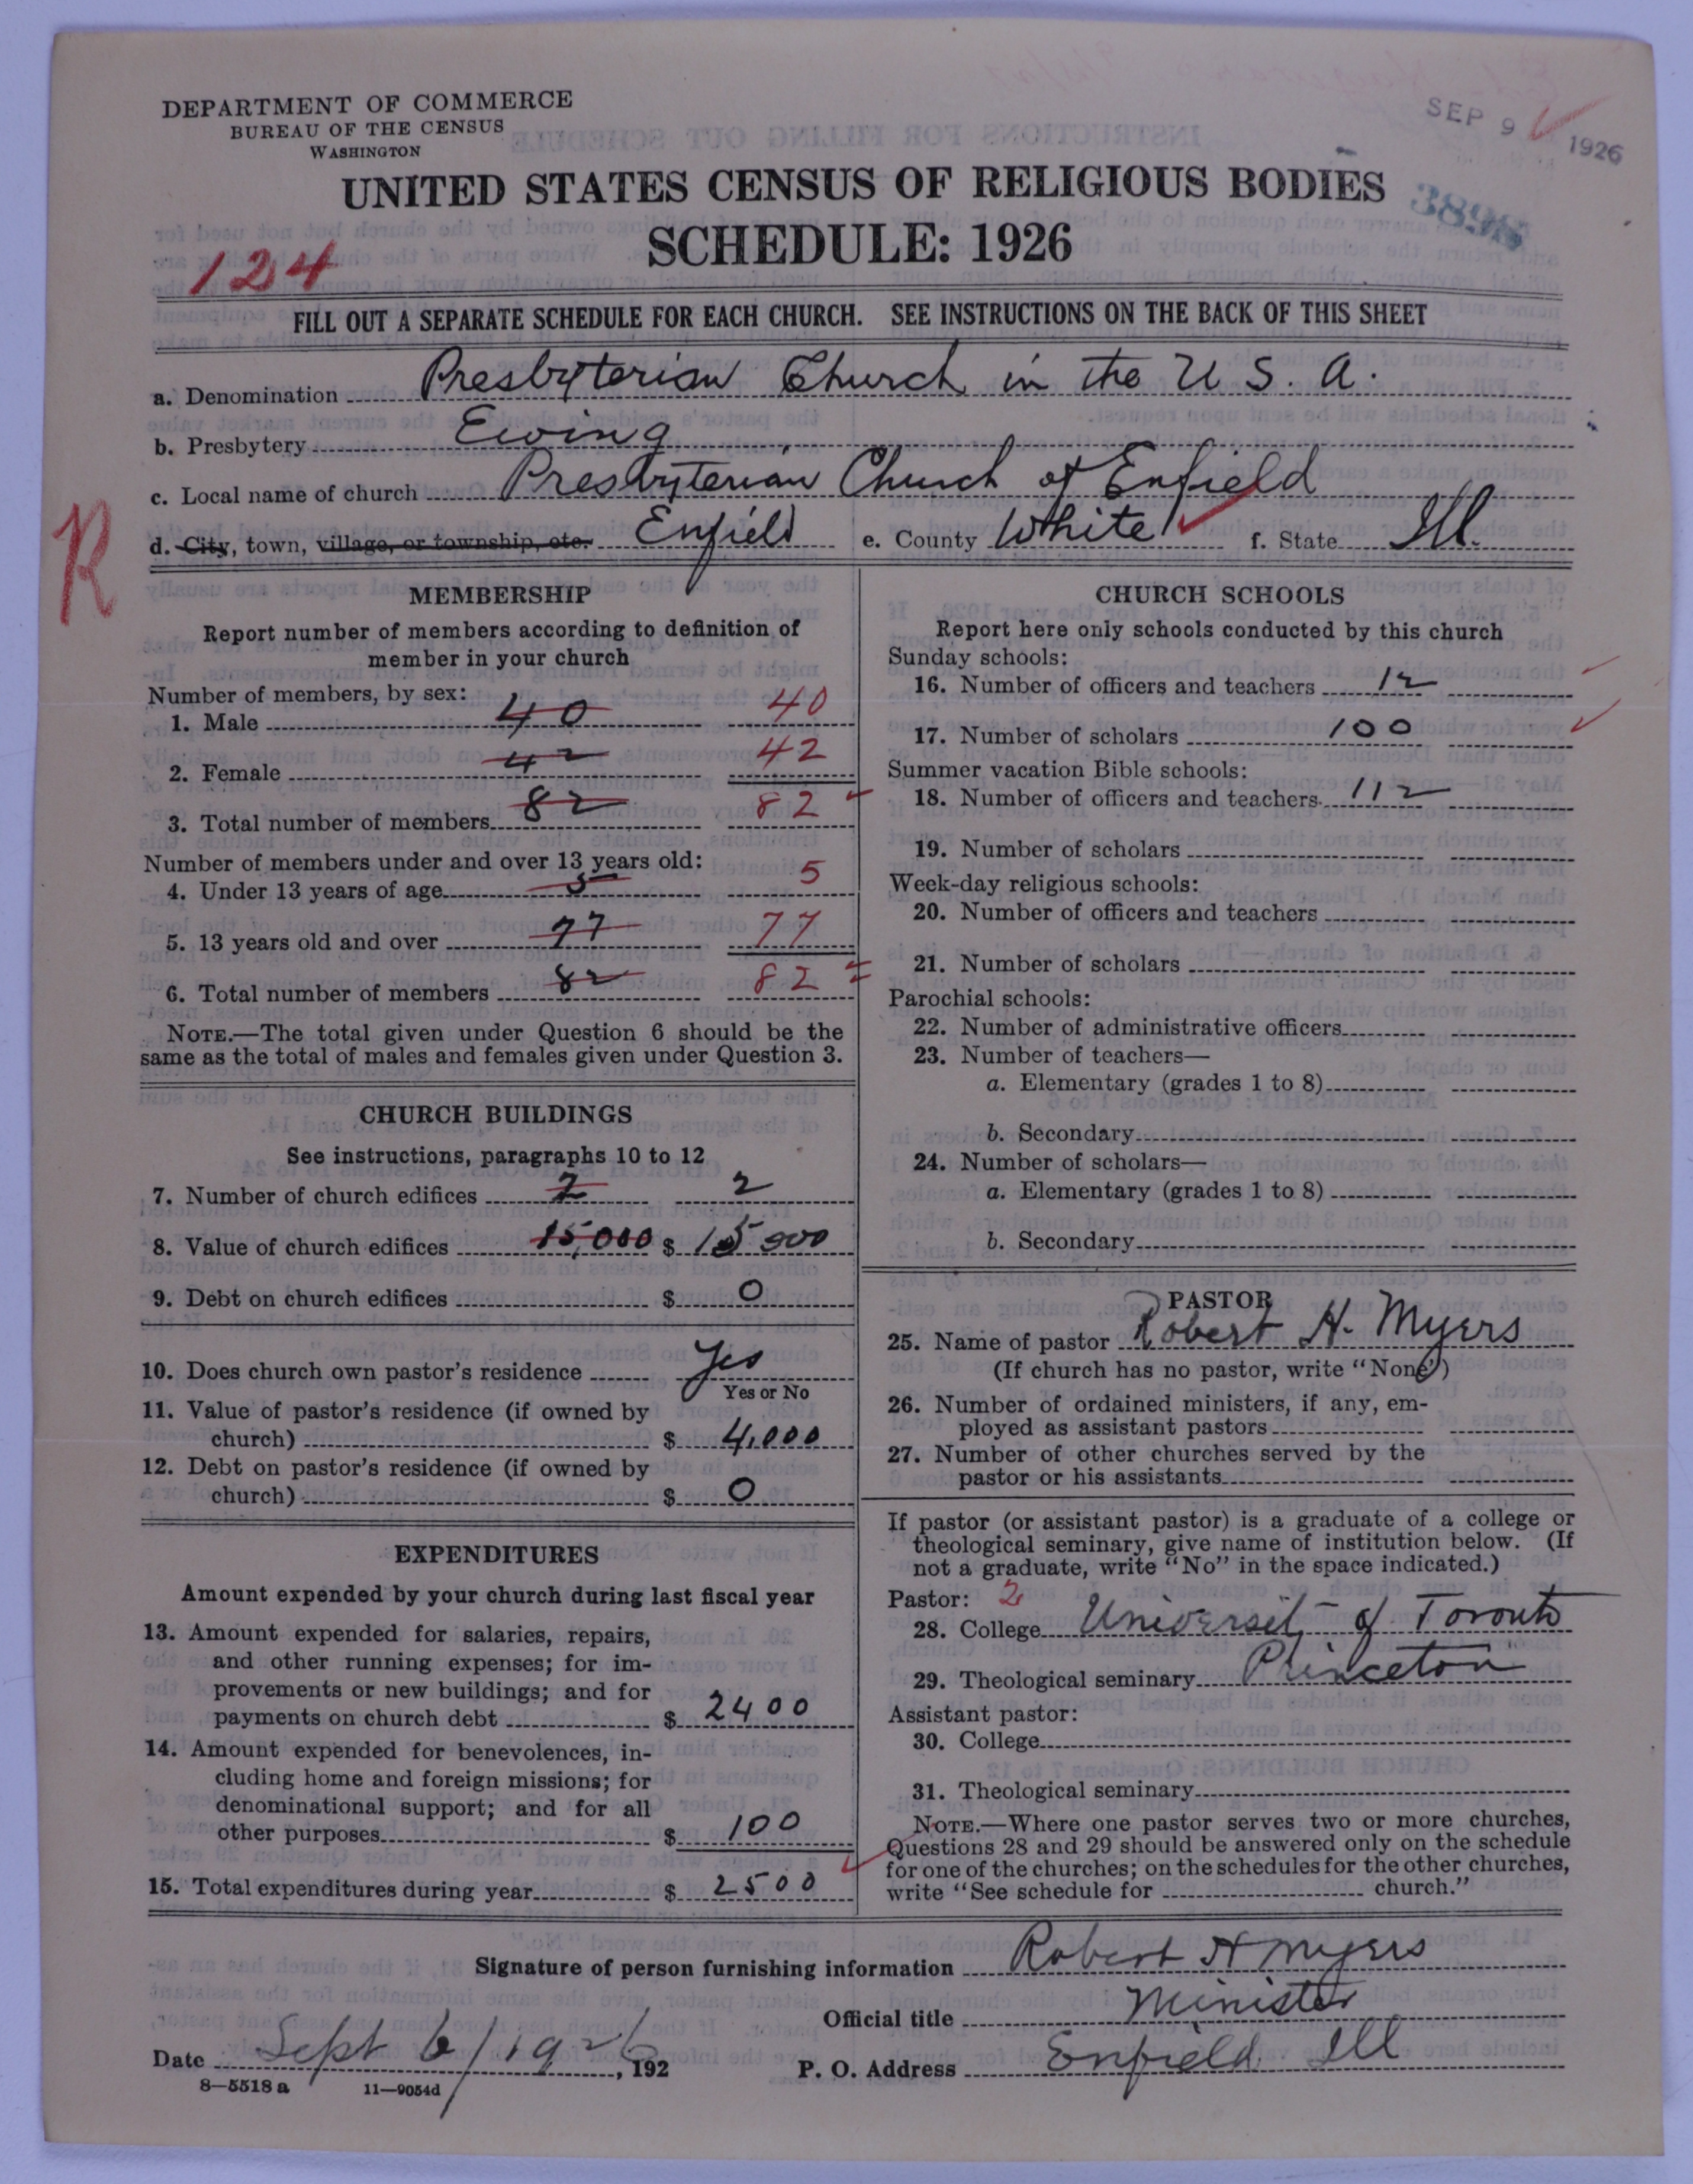 DEPARTMENT OF COMMERCE
BUREAU OF THE CENSUS
WASHINGTON
SEP 9 1926
UNITED STATES CENSUS OF RELIGIOUS BODIES
SCHEDULE: 1926
124
FILL OUT A SEPARATE SCHEDULE FOR EACH CHURCH. SEE INSTRUCTIONS ON THE BACK OF THIS SHEET
a. Denomination Presbyterian Church in the U S. A.
b. Presbytery Ewing
c. Local name of church Presbyterian Church of Enfield
R
d. City, town, village, or township, etc. Enfield e. County White f. State Ill.
MEMBERSHIP
Report number of members according to definition of
member in your church
Number of members, by sex:
1. Male 40 40
2. Female 42 42
3. Total number of members 82 82
Number of members under and over 13 years old:
4. Under 13 years of age 5 5
5. 13 years old and over 77 77
6. Total number of members 82 82
NOTE.—The total given under Question 6 should be the
same as the total of males and females given under Question 3.
CHURCH BUILDINGS
See instructions, paragraphs 10 to 12
7. Number of church edifices 2 2
8. Value of church edifices 15,000 $ 15000
9. Debt on church edifices $ 0
10. Does church own pastor's residence Yes
Yes or No
11. Value of pastor's residence (if owned by
church) $ 4,000
12. Debt on pastor's residence (if owned by
church) $ 0
EXPENDITURES
Amount expended by your church during last fiscal year
13. Amount expended for salaries, repairs,
and other running expenses; for im-
provements or new buildings; and for
payments on church debt $ 2400
14. Amount expended for benevolences, in-
cluding home and foreign missions; for
denominational support; and for all
other purposes $ 100
15. Total expenditures during year $ 2500
CHURCH SCHOOLS
Report here only schools conducted by this church
Sunday schools:
16. Number of officers and teachers 12
17. Number of scholars 100
Summer vacation Bible schools:
18. Number of officers and teachers 112
19. Number of scholars
Week-day religious schools:
20. Number of officers and teachers
21. Number of scholars
Parochial schools:
22. Number of administrative officers
23. Number of teachers—
a. Elementary (grades 1 to 8)
b. Secondary
24. Number of scholars—
a. Elementary (grades 1 to 8)
b. Secondary
PASTOR
25. Name of pastor Robert H. Myers
(If church has no pastor, write "None")
26. Number of ordained ministers, if any, em-
ployed as assistant pastors
27. Number of other churches served by the
pastor or his assistants
If pastor (or assistant pastor) is a graduate of a college or
theological seminary, give name of institution below. (If
not a graduate, write "No" in the space indicated.)
Pastor: 2
28. College University of Toronto
29. Theological seminary Princeton
Assistant pastor:
30. College
31. Theological seminary
NOTE.—Where one pastor serves two or more churches,
Questions 28 and 29 should be answered only on the schedule
for one of the churches; on the schedules for the other churches,
write "See schedule for church."
Signature of person furnishing information Robert H Myers
Official title Minister
Date Sept 6/1926, 192 P. O. Address Enfield Ill
8—5518 a 11—9054d